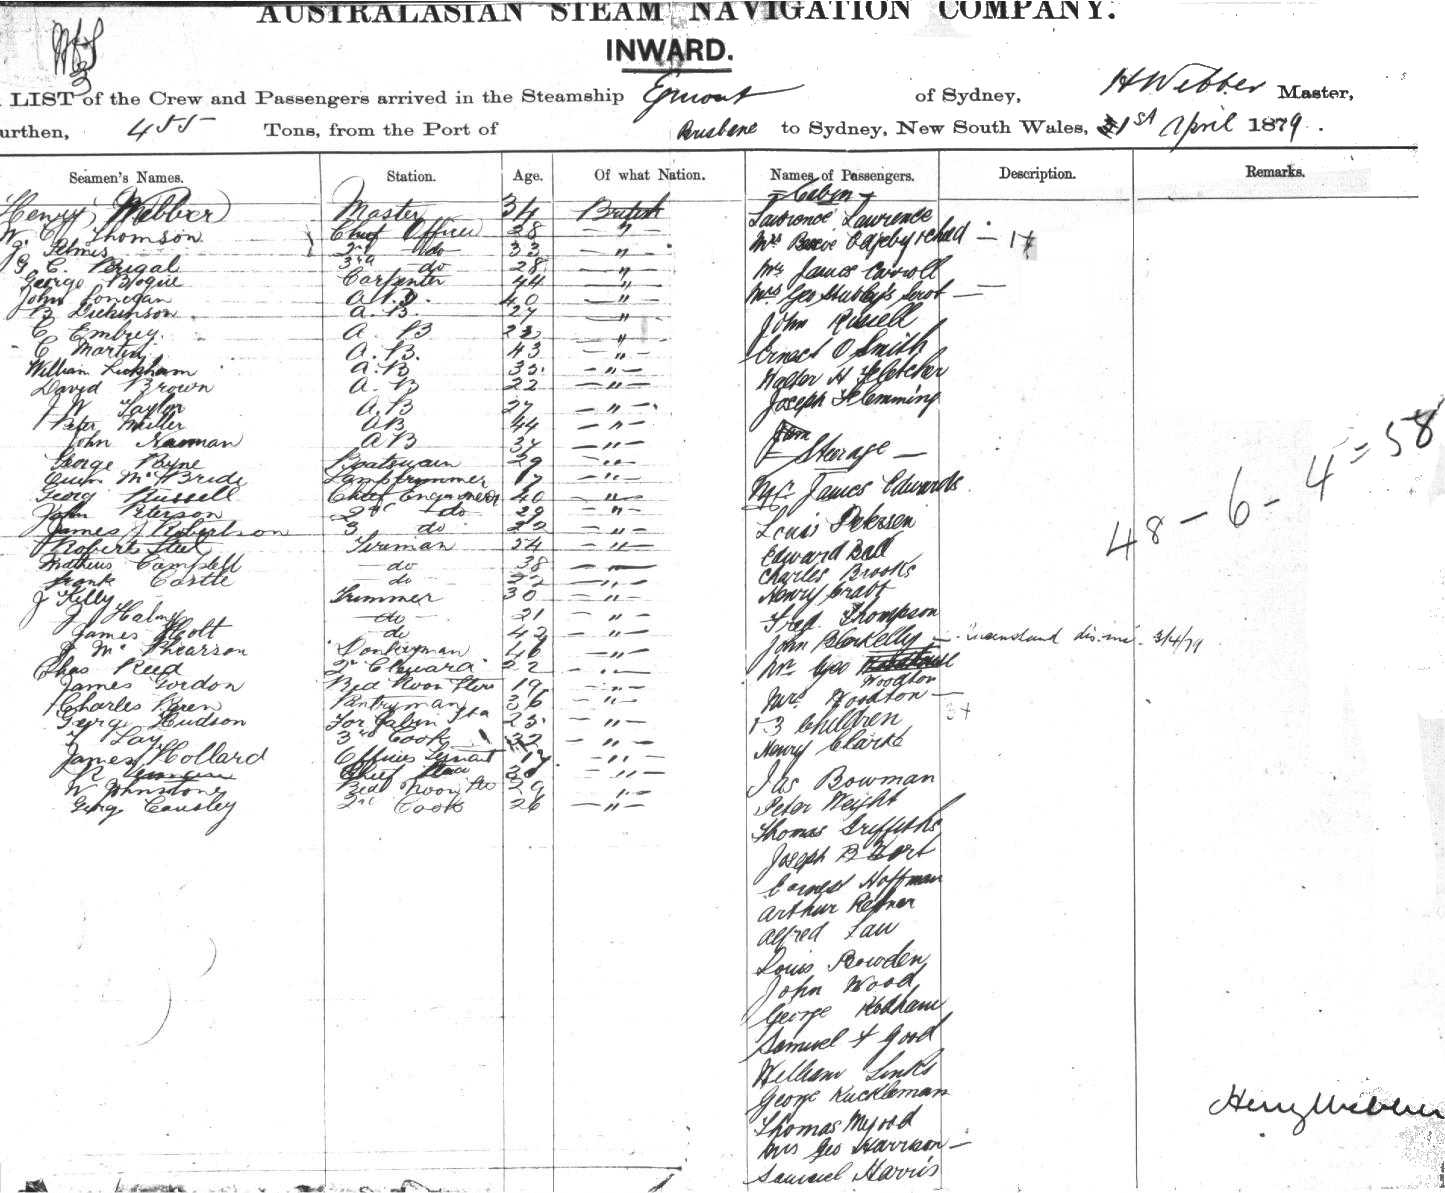 AUSTRALASIAN STEAM NAVIGATION COMPANY.
INWARD.
LIST of the Crew and Passengers arrived in the Steamship Egmont of Sydney, H Webber Master,
urthen, 455 Tons, from the Port of Brisbane to Sydney, New South Wales, 1st April 1879.
Seamen's Names. Station. Age. Of what Nation. Names of Passengers. Description. Remarks.
Henry Webber Master 34 British
W Thomson Chief Officer 28 — " —
2nd do 33 — " —
J C Brigal 3rd do 28 "
George Bogue Carpenter 44 — " —
John Lonegan A.B. 40 — " —
B Dickinson A.B. 27 — " —
C Embrey A B 22 "
C Martin A.B. 43 — " —
William Lukham A.B 35 — " —
David Brown A.B 22 — " —
W Taylor A.B 27 — " —
Peter Miller AB 44 — " —
John Newman AB 34 — " —
George Payne Boatswain 29 — " —
Owen McBride Lamptrimmer 17 — " —
Georg Russell Chief Engineer 40 — " —
John Peterson 2nd do 29 — " —
James J Robertson 3 do 22 — " —
Robert Steel Fireman 24 — " —
Mathius Campbell do 38
Frank Castle do 22 — " —
J Kelly Trimmer 30 — " —
J Halmy do 21 — " —
James Holt do 42 — " —
J McPhearson Donkeyman 46 — " —
Chas Reed 2nd Steward 22
James Gordon Bed Room Stew 19 — " —
Charles Peren Pantryman 36 — " —
Georg Hudson For Cabin 23 — " —
Lay 3rd Cook 32 — " —
James Hollard Officers Servant 17 — " —
Chief — " —
W Johnstone Bed Room 29 "
Georg Causley 2nd Cook 26 — " —
Cabin
Lawrence Lawrence
Mrs — 1
Mr James Carroll
Mrs Geo Servt —
John Russell
Ernest O Smith
Walter H Fletcher
Joseph Flemming
Steerage —
James Edwards
Louis Petersen
Edward Ball
Charles Brooks
Henry Crabt
Fred Thompson
John — Queensland 3/4/79
Mr Geo
Woodton
Mrs Woodton —
3 Children 3
Henry Clarke
Jas Bowman
Peter Weight
Thomas Griffiths
Joseph B
Earnest Hoffman
Arthur Refner
Alfred Law
Louis Bowden
John Wood
George Rodham
Samuel F Good
William Links
George Kuckleman
Thomas Myood
Mrs Geo Harrison —
Samuel Harris
48 - 6 - 4 = 58
Henry Webber